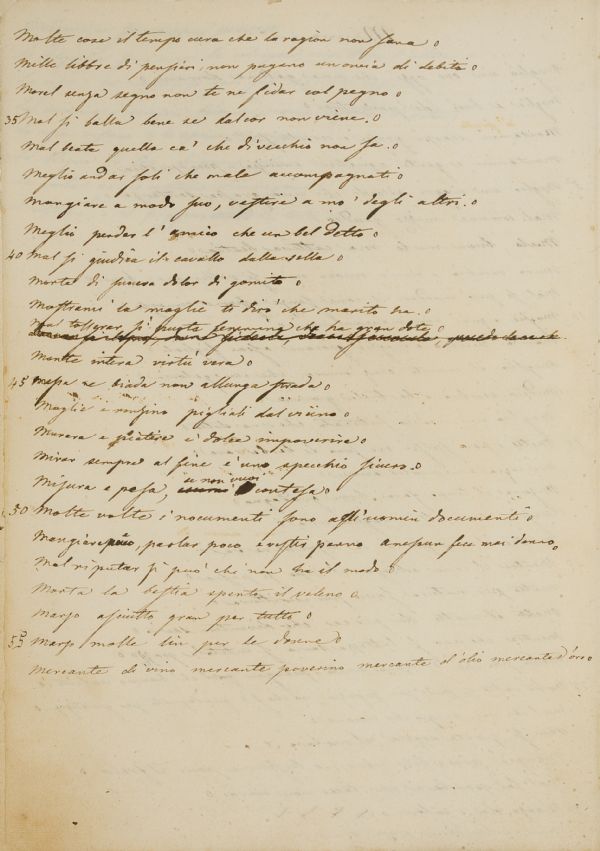 Molte cose il tempo cura che la ragion non sana
Mille libbre di pensieri non pagano un'oncia di debito
Morel senza segno non te ne fidar col pegno
35 Mal si balla bene se dal cor non viene.
Mal beata quella ca' che di vecchio non sa.
Meglio andar soli che male accompagnati
Mangiare a modo suo, vestire a mo' degli altri.
Meglio perder l'amico che un bel detto
40 Mal si giudica il cavallo dalla sella
Morta di suocera dolor di gomito
Mostrami la moglie ti dirò che marito ha.
Mal tollerar si puote femmina che ha gran dote
Mente intera virtù vera
45 Messa nè biada non allunga strada
Moglie e ronzino pigliali dal vicino
Murare e piatire è dolce impoverire
Mirar sempre al fine è uno specchio sincero.
Misura e pesa, se non vuoi contesa
50 Molte volte i nocumenti sono agli uomin documenti
Mangiare poco, parlar poco e vestir panno a nessun fece mai danno
Mal riputar si può chi non ha il modo
Morta la bestia spento il veleno
Marzo asciutto gran per tutto
55 Marzo molle lin per le donne
Mercante di vino mercante poverino mercante d'olio mercante d'oro